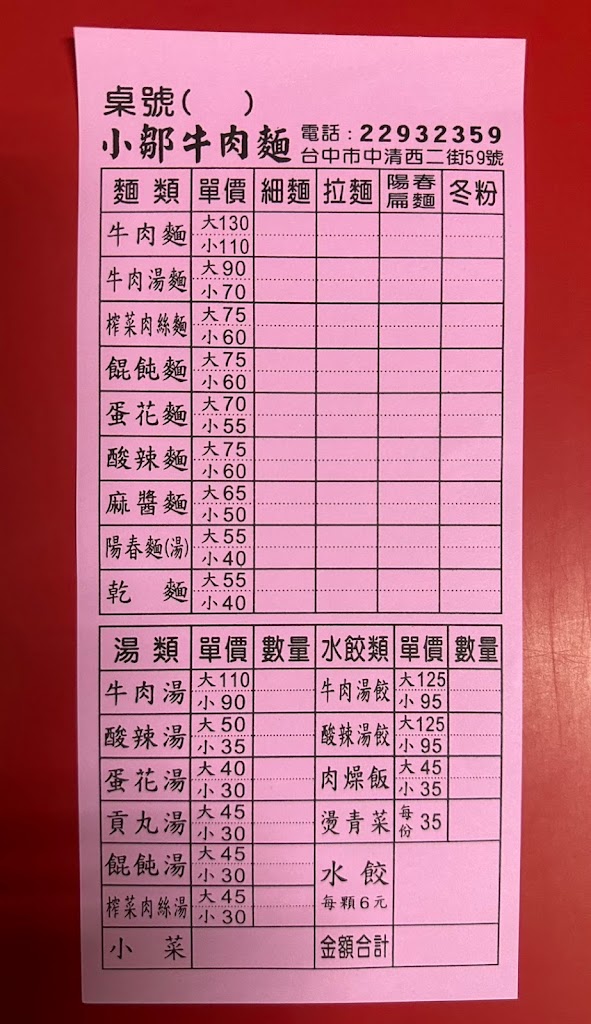 桌號(　)
小鄒牛肉麵 電話：22932359
台中市中清西二街59號
麵類 單價 細麵 拉麵 陽春扁麵 冬粉
牛肉麵 大130 小110
牛肉湯麵 大90 小70
榨菜肉絲麵 大75 小60
餛飩麵 大75 小60
蛋花麵 大70 小55
酸辣麵 大75 小60
麻醬麵 大65 小50
陽春麵(湯) 大55 小40
乾麵 大55 小40
湯類 單價 數量 水餃類 單價 數量
牛肉湯 大110 小90 牛肉湯餃 大125 小95
酸辣湯 大50 小35 酸辣湯餃 大125 小95
蛋花湯 大40 小30 肉燥飯 大45 小35
貢丸湯 大45 小30 燙青菜 每份35
餛飩湯 大45 小30 水餃 每顆6元
榨菜肉絲湯 大45 小30
小菜 金額合計